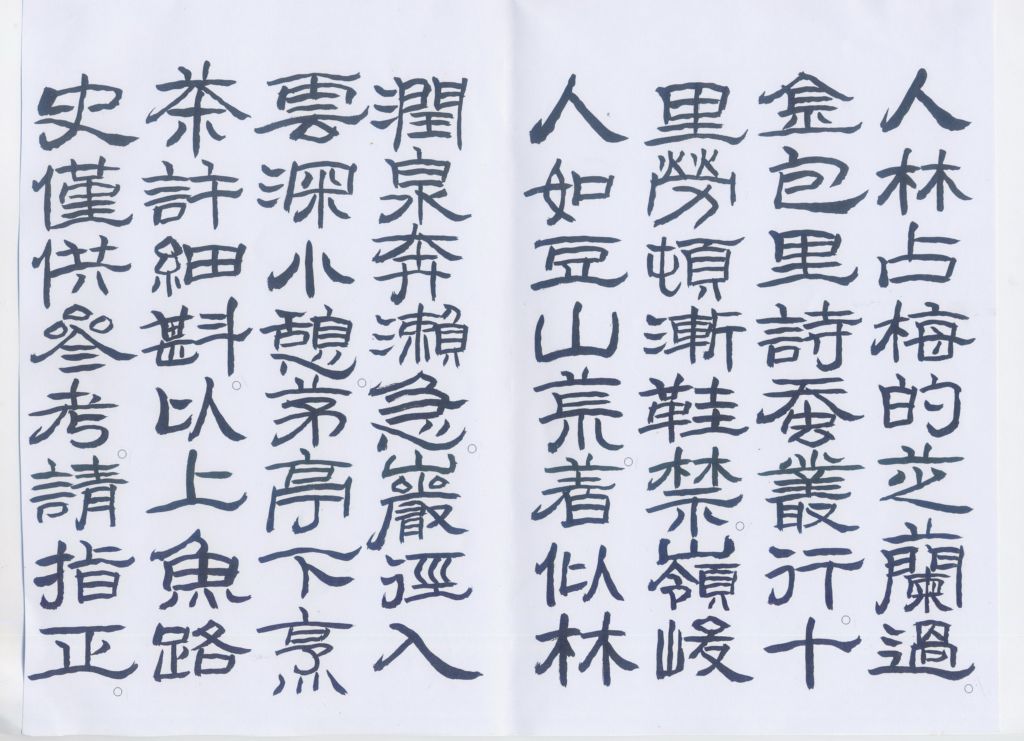 人林占梅的芝蘭過。
金包里詩蚕叢行。十
里勞頓漸鞋禁。嶺峻
人如豆山荒。着似林
潤泉奔瀨急。巖徑入
雲深小憩。茅亭下烹
茶許細斟。以上魚路
史僅供參考。請指正。